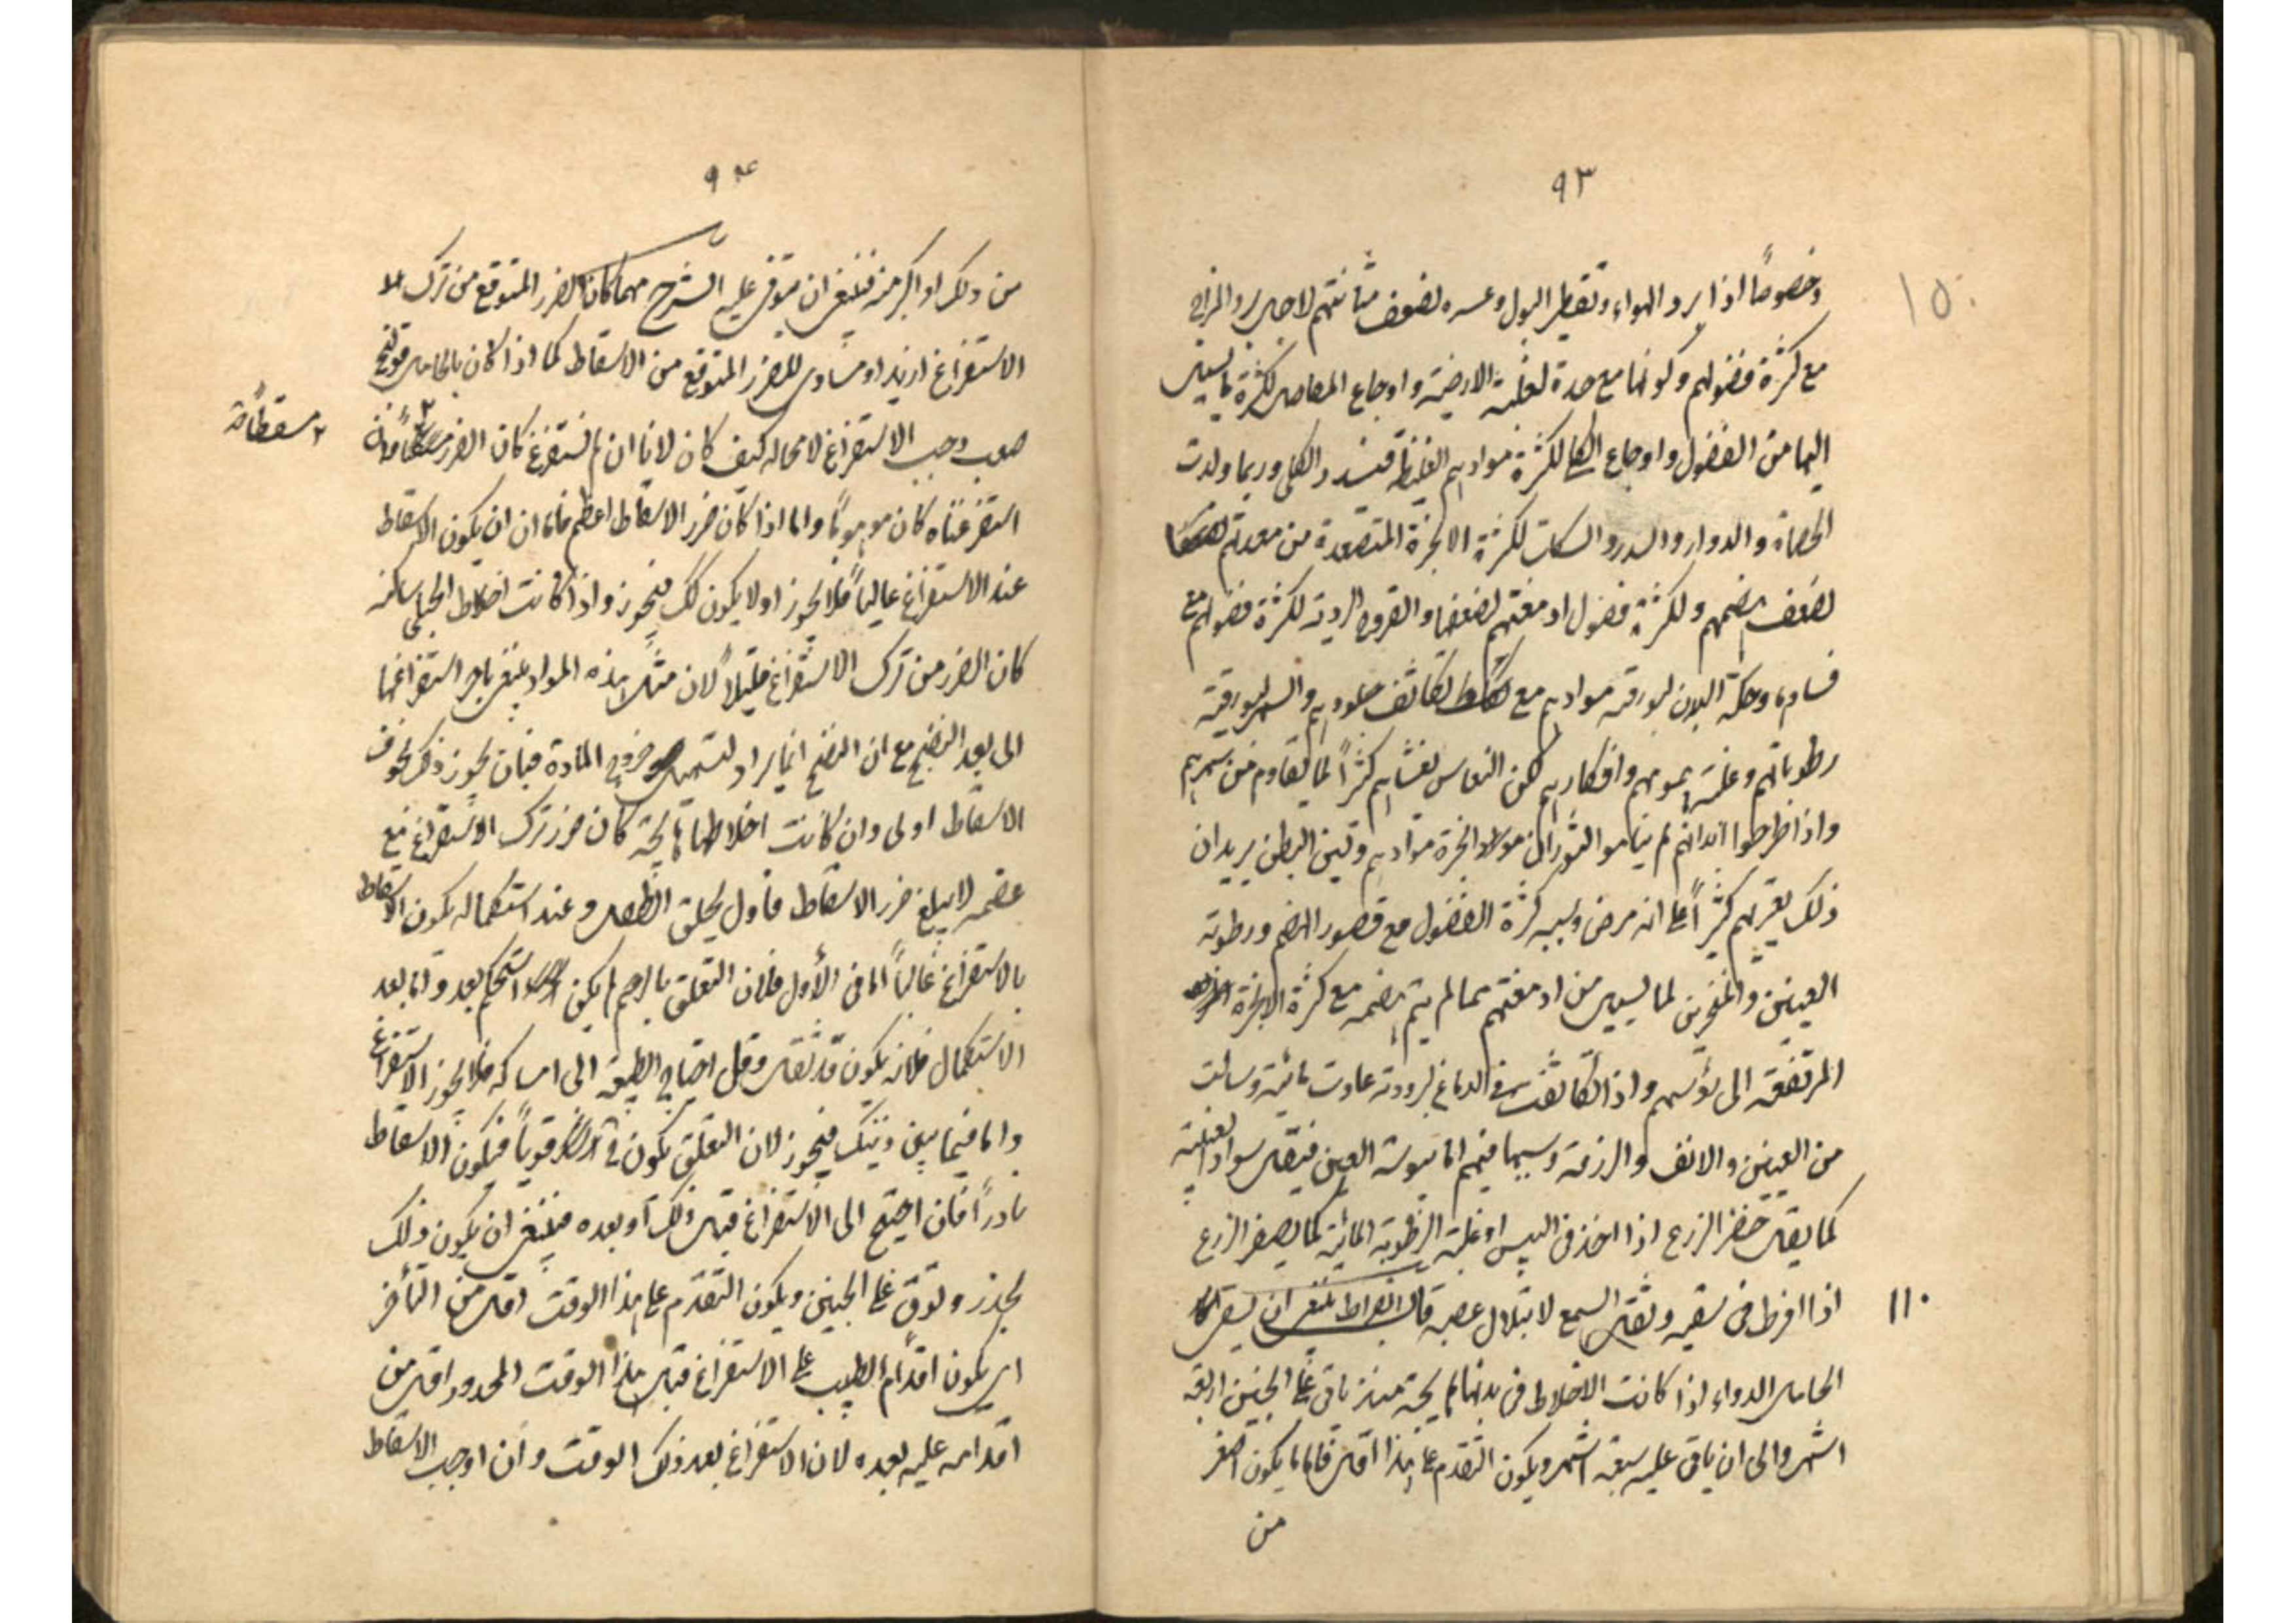 ٩٣
١٥٠
وخصوصاً اذا برد الهواء وتقطير البول وعسره لضعف مثانتهم لاجل برد المزاج
مع كثرة فضولهم وكونها مع حدة لغلبة الارضية واوجاع المفاصل لكثرة ما يسيل
اليها من الفضول واوجاع الكلى لكثرة موادهم الغليظة فتسدد الكلى وربما ولدت
الحصاة والدوار والسدر والسكات لكثرة الابخرة المتصعدة من معدتهم
لضعف هضمهم ولكثرة فضول ادمغتهم لضعفها والقروح الردية لكثرة فضولهم مع
فسادها وحكة البدن لبورقية موادهم مع تكاثف جلودهم والسهر لبورقية
رطوباتهم وغلبة همومهم وافكارهم لكن النعاس يغشاهم كثيراً لما تقدم من سهرهم
واذا طرحوا ابدانهم لم يناموا لثوران ابخرة موادهم ولين البطن يريد ان
ذلك يعتريهم كثيراً على انه مرض وسببه كثرة الفضول مع قصور الهضم ورطوبة
العينين والمنخرين لما يسيل من ادمغتهم مما لم يتم هضمه مع كثرة الابخرة
المرتفعة الى رؤسهم واذا تكاثفت في الدماغ لبرودته عادت مائية وسالت
من العينين والانف والزرقة وسببها فيهم اما يبوسة العين فيقل سوادا لعنبية
كما يقل خضر الزرع اذا اخذ في اليبس او غلبة الرطوبة المائية كما يصفر الزرع
١١٠ اذا افرط في سقيه وثقل السمع لابتلال عصبه قال ابقراط ينبغي ان يسقى
الحامل الدواء اذا كانت الاخلاط في بدنها هايجة منذ ياتي على الجنين اربعة
اشهر والى ان ياتى عليه سبعة اشهر ويكون التقدم على هذا اقل فاما ما يكون اصغر
من
٩٤
من ذلك او اكبر منه فينبغي ان يتوقى عليه الشرح مهما كان الضرر المتوقع من ترك
الاستفراغ ازيد او مساوى للضرر المتوقع من الاسقاط كما اذا كان بالحامل قولنج
صعب وجب الاستفراغ لا محالة كيف كان لانا ان لم نستفرغ كان الضرر
٢ مسقطاً
استفرغناه كان موهوماً واما اذا كان ضرر الاسقاط اعظم فاما ان يكون الاسقاط
عند الاستفراغ غالباً فلا يجوز او لا يكون كذلك فيجوز واذا كانت اخلاط الحبلى ساكنة
كان الضرر من ترك الاستفراغ قليلاً لان مثل هذه المواد ينبغي تاخير استفراغها
الى بعد النضج مع ان النضج انما يراد لتسهيل خروج المادة فبان يجوز ذلك لخوف
الاسقاط اولى وان كانت اخلاطها هايجة كان ضرر ترك الاستفراغ مع
عظمه لا يبلغ ضرر الاسقاط فاول تخلق الطفل وعند استكماله يكون الاسقاط
بالاستفراغ غالباً اما في الأول فلان التعلق بالرحم لم يكن استحكم بعد واما بعد
الاستكمال فلانه يكون قد ثقل وقل احتياج الطبيعة الى امساكه فلا يجوز الاستفراغ
واما فيما بين ذينك فيجوز لان التعلق يكون في قوياً فيكون الاسقاط
نادراً فان احتيج الى الاستفراغ قبل ذلك أو بعده فينبغي ان يكون ذلك
بحذر وتوق على الجنين ويكون التقدم على هذا الوقت اقل من التأخر
اى يكون اقدام الطبيب على الاستفراغ قبل هذا الوقت المحدود اقل من
اقدامه عليه بعده لان الاستفراغ بعد ذلك الوقت وان اوجب الاسقاط